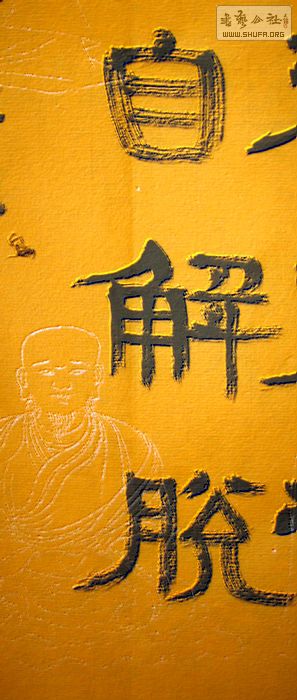 書藝公社
WWW.SHUFA.ORG
自解脱